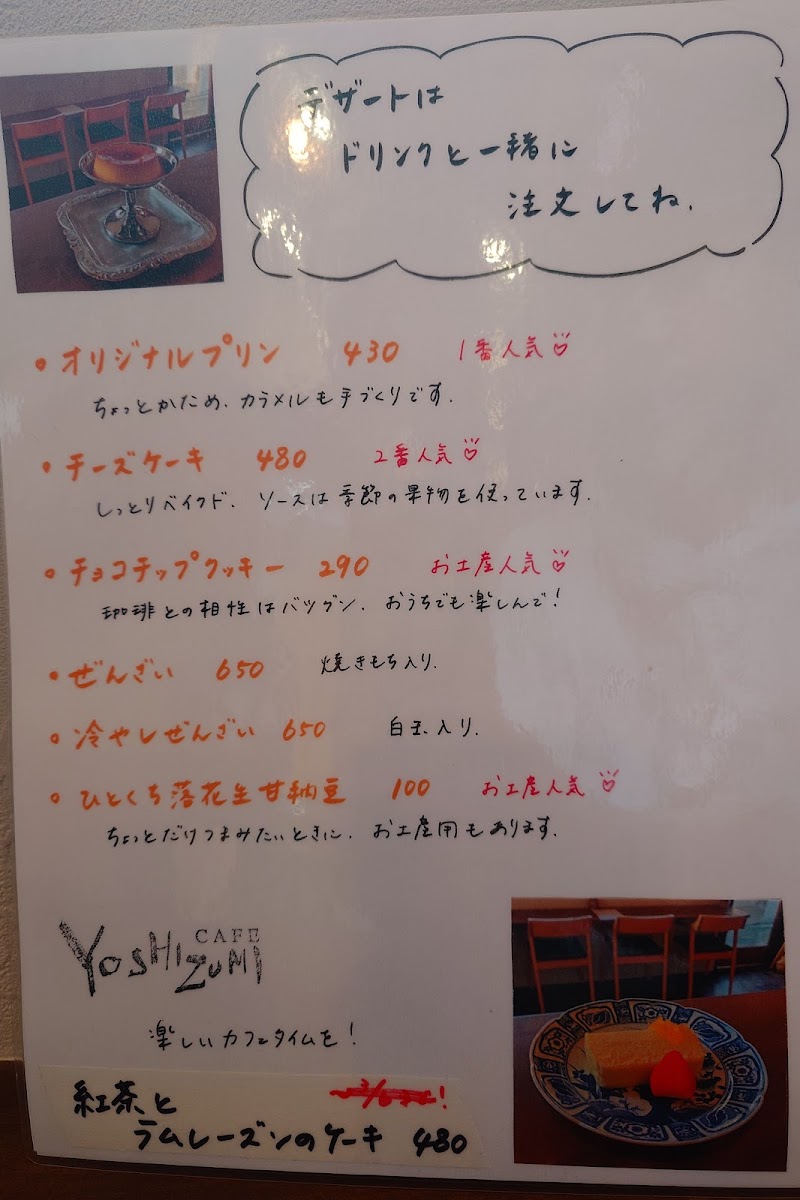 デザートは
ドリンクと一緒に
注文してね.
・オリジナルプリン 430 1番人気♡
ちょっとかため、カラメルも手づくりです.
・チーズケーキ 480 2番人気♡
しっとりベイクド. ソースは季節の果物を使っています.
・チョコチップクッキー 290 お土産人気♡
珈琲との相性はバツグン. おうちでも楽しんで!
・ぜんざい 650 焼きもち入り.
・冷やしぜんざい 650 白玉入り.
・ひとくち落花生甘納豆 100 お土産人気♡
ちょっとだけつまみたいときに. お土産用もあります.
CAFE
YOSHIZUMI
楽しいカフェタイムを!
紅茶と
ラムレーズンのケーキ 480